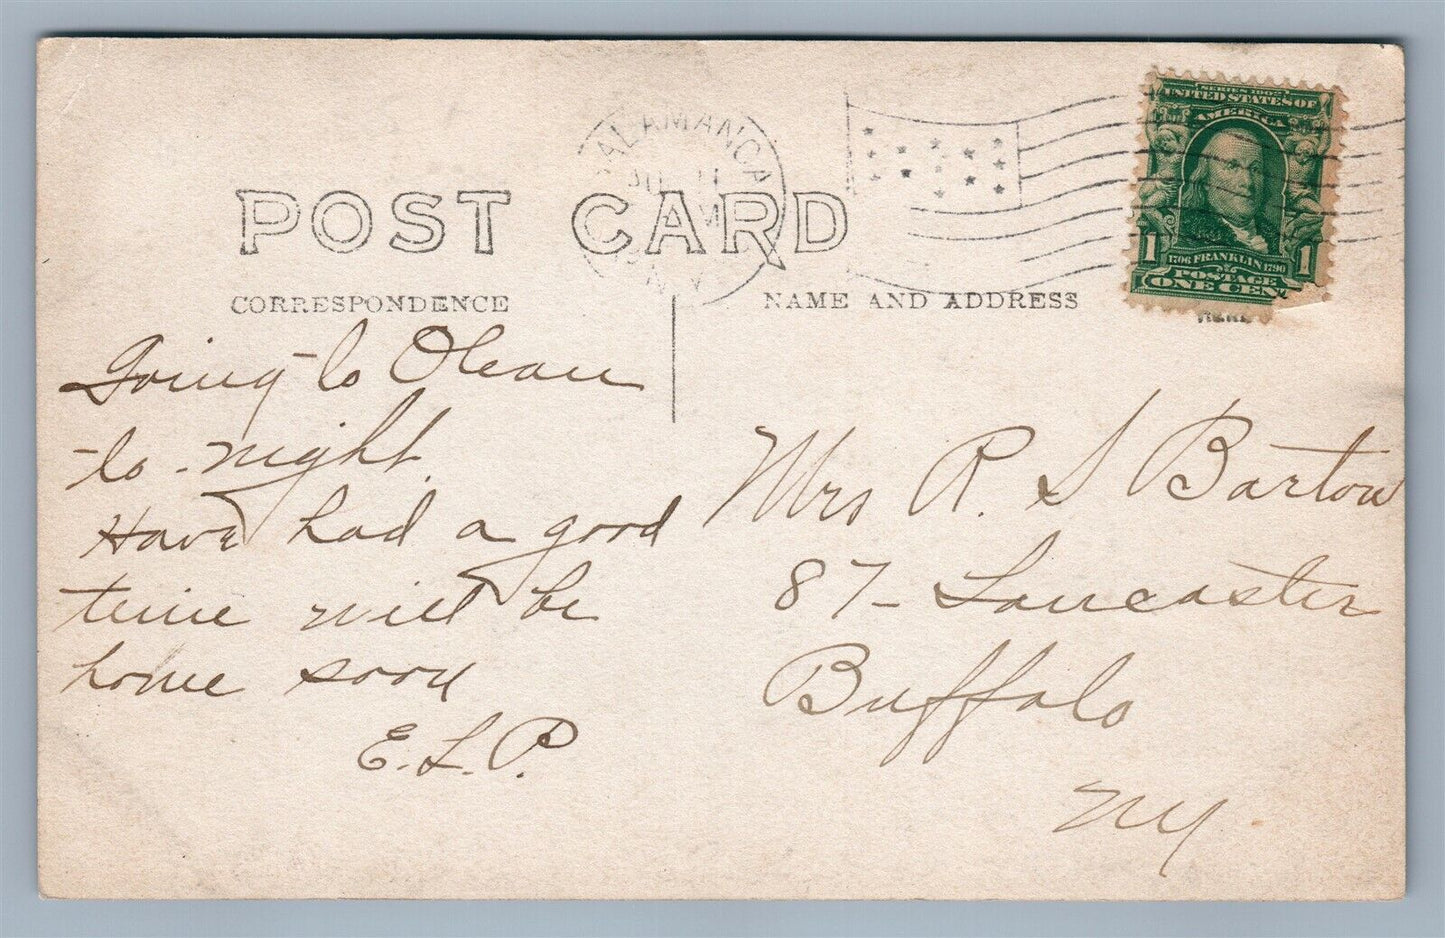 SALAMANCA
N.Y.
SERIES 1902
UNITED STATES OF
AMERICA
1 1
1706 FRANKLIN 1790
POSTAGE
ONE CENT
HERE
POST CARD
CORRESPONDENCE
NAME AND ADDRESS
Going to Olean
to-night.
Have had a good
time will be
home soon
E.L.P.
Mrs R. S Bartow
87- Lancaster
Buffalo
NY